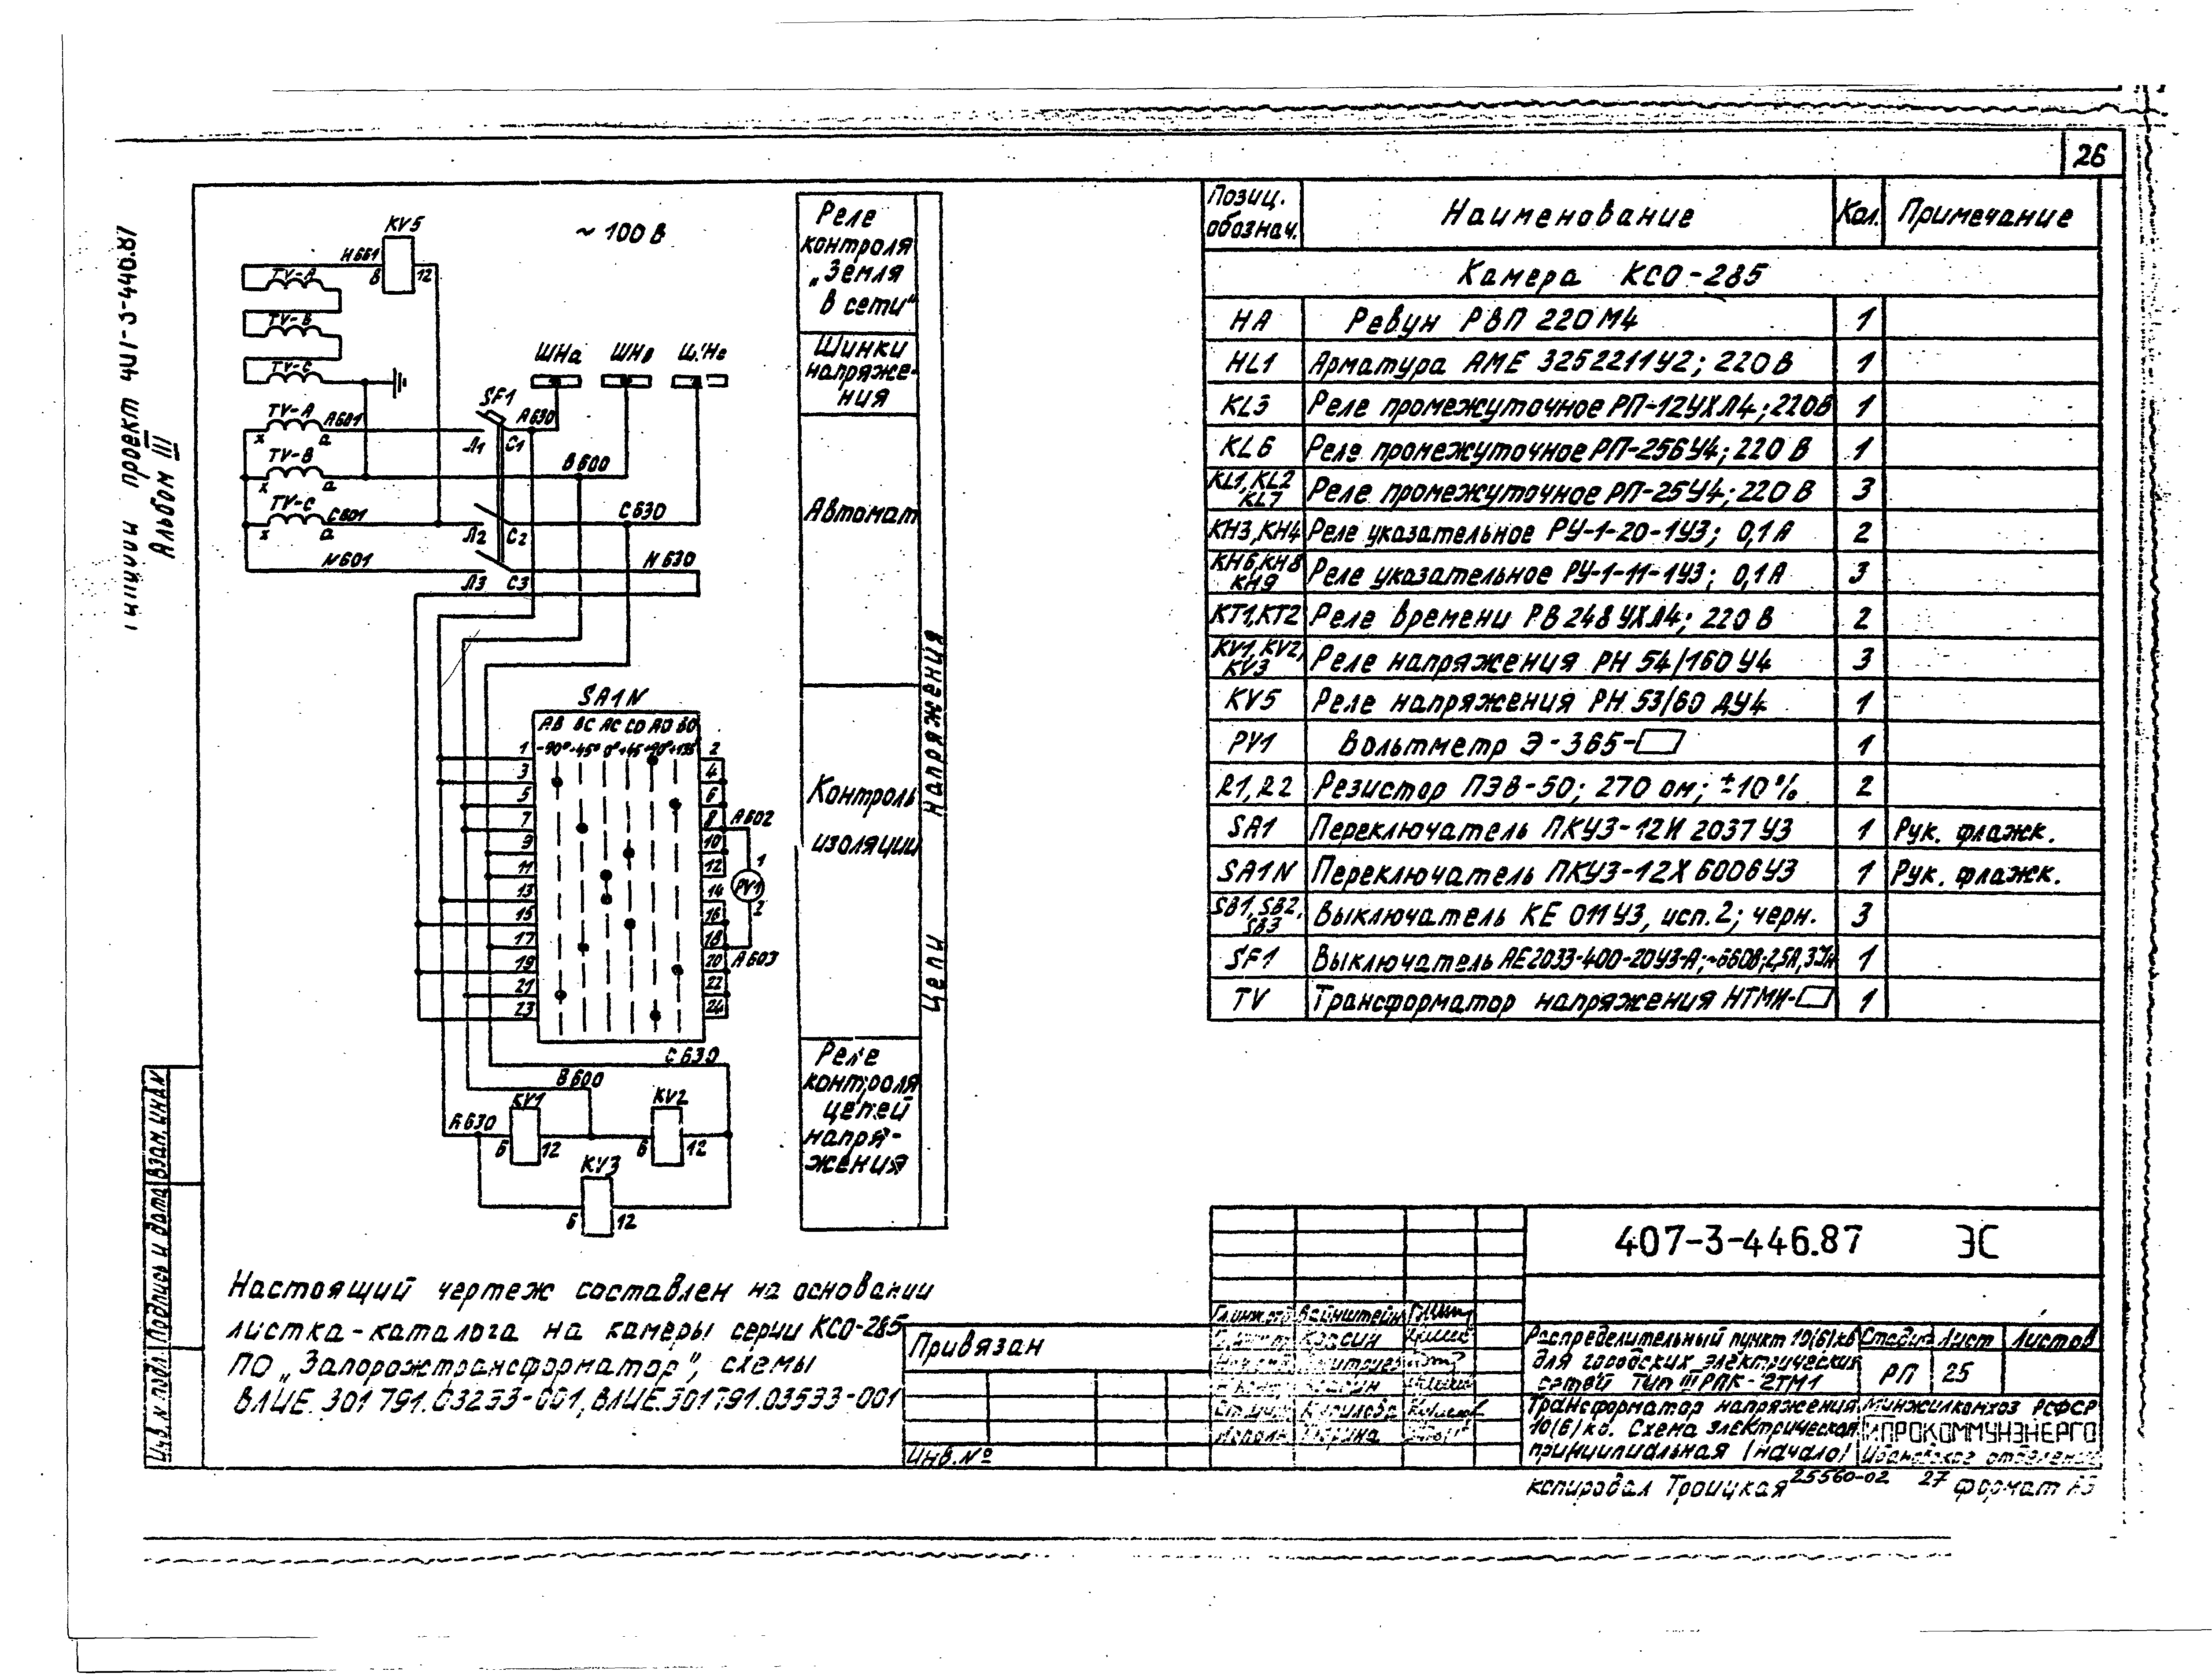 26
Типовой проект 407-3-446.87
Альбом III
~ 100 В
KV5
Н661
8
12
TV-A
TV-B
TV-C
ШНа
ШНв
ШНс
SF1
TV-A
А601
А630
x
a
Л1
C1
TV-B
В600
x
a
TV-C
С601
С630
x
a
Л2
C2
N601
Н630
Л3
C3
SA1N
АВ ВС АС СО АО ВО
1
2
3
4
5
6
7
8
9
10
11
12
13
14
15
16
17
18
19
20
21
22
23
24
А602
1
PV1
2
А603
С630
В600
А630
KV1
KV2
6
12
6
12
KV3
6
12
Реле
контроля
„Земля
в сети"
Шинки
напряже-
ния
Автомат
Контроль
изоляции
Реле
контроля
цепей
напря-
жения
Цепи напряжения
Позиц. обознач. Наименование Кол. Примечание
Камера КСО-285
НА Ревун РВП 220М4 1
HL1 Арматура АМЕ 325221У2; 220В 1
KL3 Реле промежуточное РП-12УХЛ4; 220В 1
KL6 Реле промежуточное РП-256У4; 220 В 1
KL1, KL2 KL7 Реле промежуточное РП-25У4; 220 В 3
KH3, KH4 Реле указательное РУ-1-20-1У3; 0,1А 2
KH6, KH8 KH9 Реле указательное РУ-1-11-1У3; 0,1А 3
KT1, KT2 Реле времени РВ 248 УХЛ4; 220 В 2
KV1, KV2, KV3 Реле напряжения РН 54/160 У4 3
KV5 Реле напряжения РН 53/60 ДУ4 1
PV1 Вольтметр Э-365- 1
R1, R2 Резистор ПЭВ-50; 270 ом; ±10% 2
SA1 Переключатель ПКУ3-12И 2037 У3 1 Рук. флажк.
SA1N Переключатель ПКУ3-12Х 6006У3 1 Рук. флажк.
SB1, SB2, SB3 Выключатель КЕ 011У3, исп. 2; черн. 3
SF1 Выключатель АЕ2033-400-20У3-А; ~660В; 2,5А, 1
TV Трансформатор напряжения НТМИ- 1
Настоящий чертеж составлен на основании
листка-каталога на камеры серии КСО-285
ПО „Запорожтрансформатор", схемы
ВЛИЕ.301 791.03233-001, ВЛИЕ.301791.03533-001
Взам. инв. N
Подпись и дата
Инв. N подл.
Привязан
Инв. №
407-3-446.87 ЭС
Гл. инж. Вайнштейн
Распределительный пункт 10(6) кв
для городских электрических
сетей тип III РПК-2ТМ1
Стадия Лист Листов
РП 25
Трансформатор напряжения
10(6) кв. Схема электрическая
принципиальная (начало)
Минжилкомхоз РСФСР
ГИПРОКОММУНЭНЕРГО
Ивановское отделение
копировал Троицкая 25560-02 27 формат А3